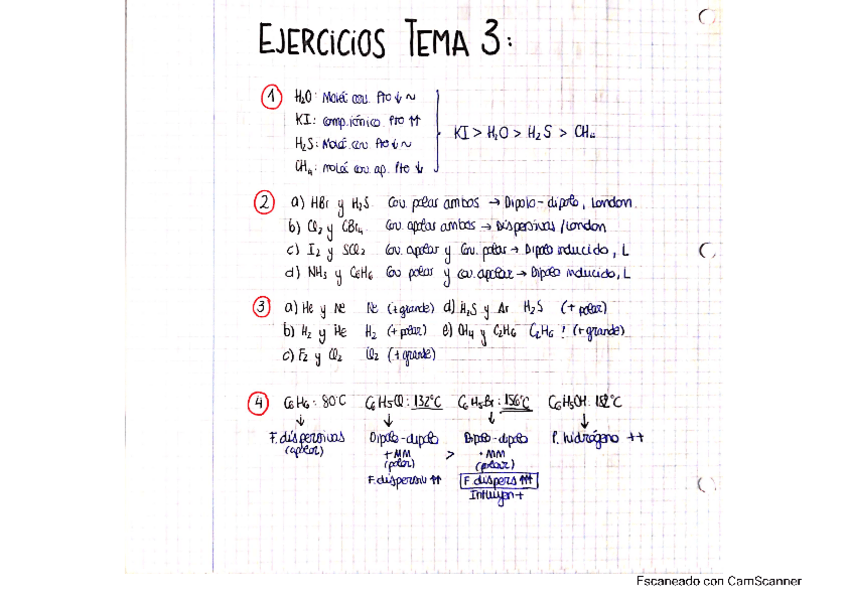 EJERCICIOS TEMA 3:
1 H₂O: Moléc cov. Pto ↓ ~
KI: comp. iónico Pto ↑↑
H₂S: Moléc cov Pto ↓ ~
CH₄: moléc cov ap. Pto ↓
KI > H₂O > H₂S > CH₄
2 a) HBr y H₂S Cov. polar ambos → Dipolo-dipolo, London
b) Cl₂ y CBr₄ Cov. apolar ambos → Dispersivas / London
c) I₂ y SCl₂ Cov. apolar y Cov. polar → Dipolo inducido, L
d) NH₃ y C₆H₆ Cov polar y cov. apolar → Dipolo inducido, L
3 a) He y Ne Ne (+ grande) d) H₂S y Ar H₂S (+ polar)
b) H₂ y He H₂ (+ polar) e) CH₄ y C₂H₆ C₂H₆ ! (+ grande)
c) F₂ y Cl₂ Cl₂ (+ grande)
4 C₆H₆: 80°C C₆H₅Cl: 132°C C₆H₅Br: 156°C C₆H₅OH: 182°C
F. dispersivas Dipolo-dipolo Dipolo-dipolo P. hidrógeno ++
(apolar) + MM > · MM
(polar) (polar)
F. dispersiv ↑↑ F. dispers ↑↑↑
Influyen +
Escaneado con CamScanner